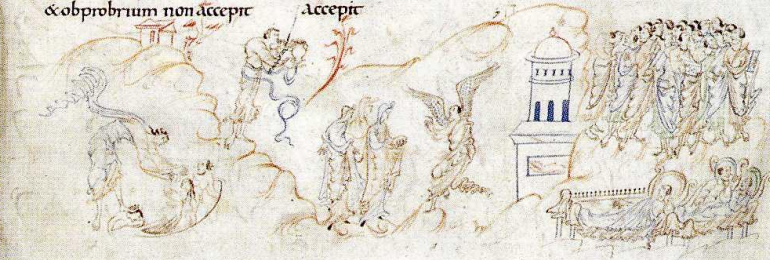 & obprobrium non accepit accepit